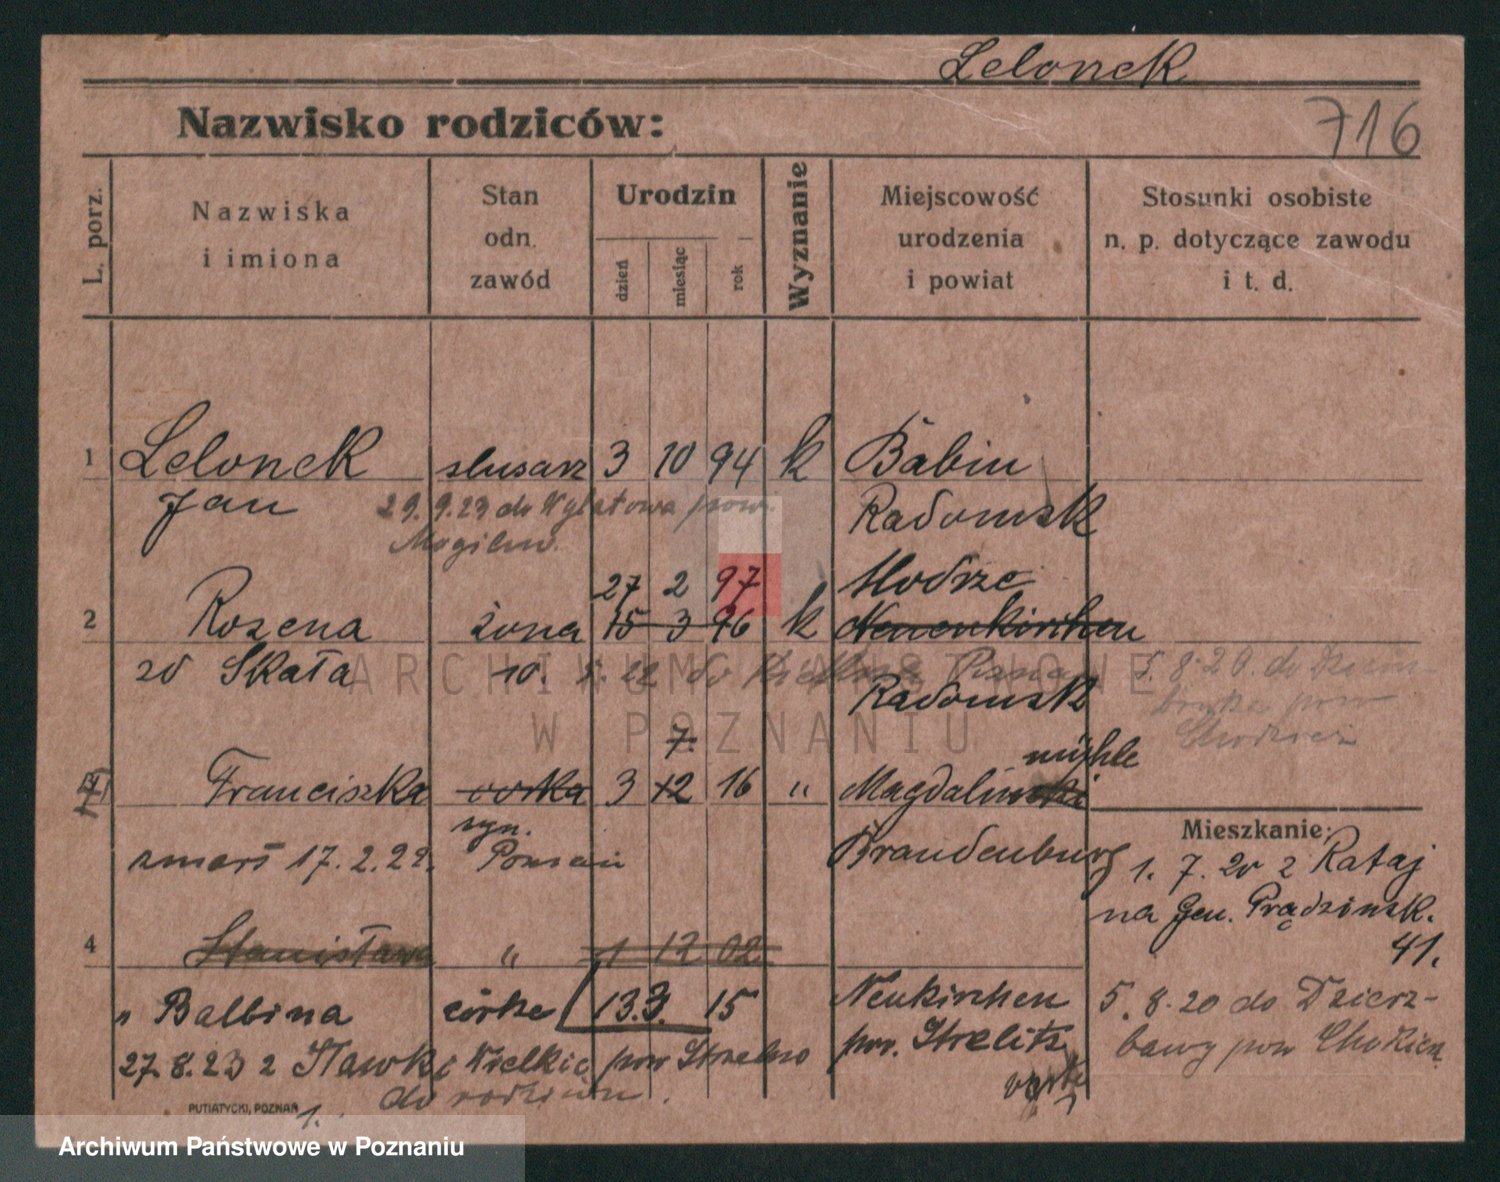 Lelonek
Nazwisko rodziców:
716
L. porz.
Nazwiska
i imiona
Stan
odn.
zawód
Urodzin
dzień
miesiąc
rok
Wyznanie
Miejscowość
urodzenia
i powiat
Stosunki osobiste
n. p. dotyczące zawodu
i t. d.
1 Lelonek slusarz 3 10 94 k Babin
Jan Radomsk
29. 9. 23 do Wylatowa pow.
Mogilno.
27 2 97 Modrze
2 Rozena żona 15 3 96 k Neuenkirchen
zd Skała 10. 5. 22 do
Radomsk
5. 8. 20. do
pow
7.
mühle
Franciszka corka 3 12 16 " Magdalin
syn.
zmarł 17. 2. 22. Poznań Brandenburg
Mieszkanie:
1. 7. 20 z Rataj
na Gen. Prądzinsk.
41.
4 Stanisława " 1 12 02
" Balbina córka 13. 3. 15 Neukirchen
pow. Strelitz
5. 8. 20 do Dzierz-
bawy pow Chodzież
27. 8. 23 z Sławsk Wielkie pow Strzelno
do rodziców.
1.
PUTIATYCKI, POZNAŃ
ARCHIWUM PAŃSTWOWE
W POZNANIU
Archiwum Państwowe w Poznaniu